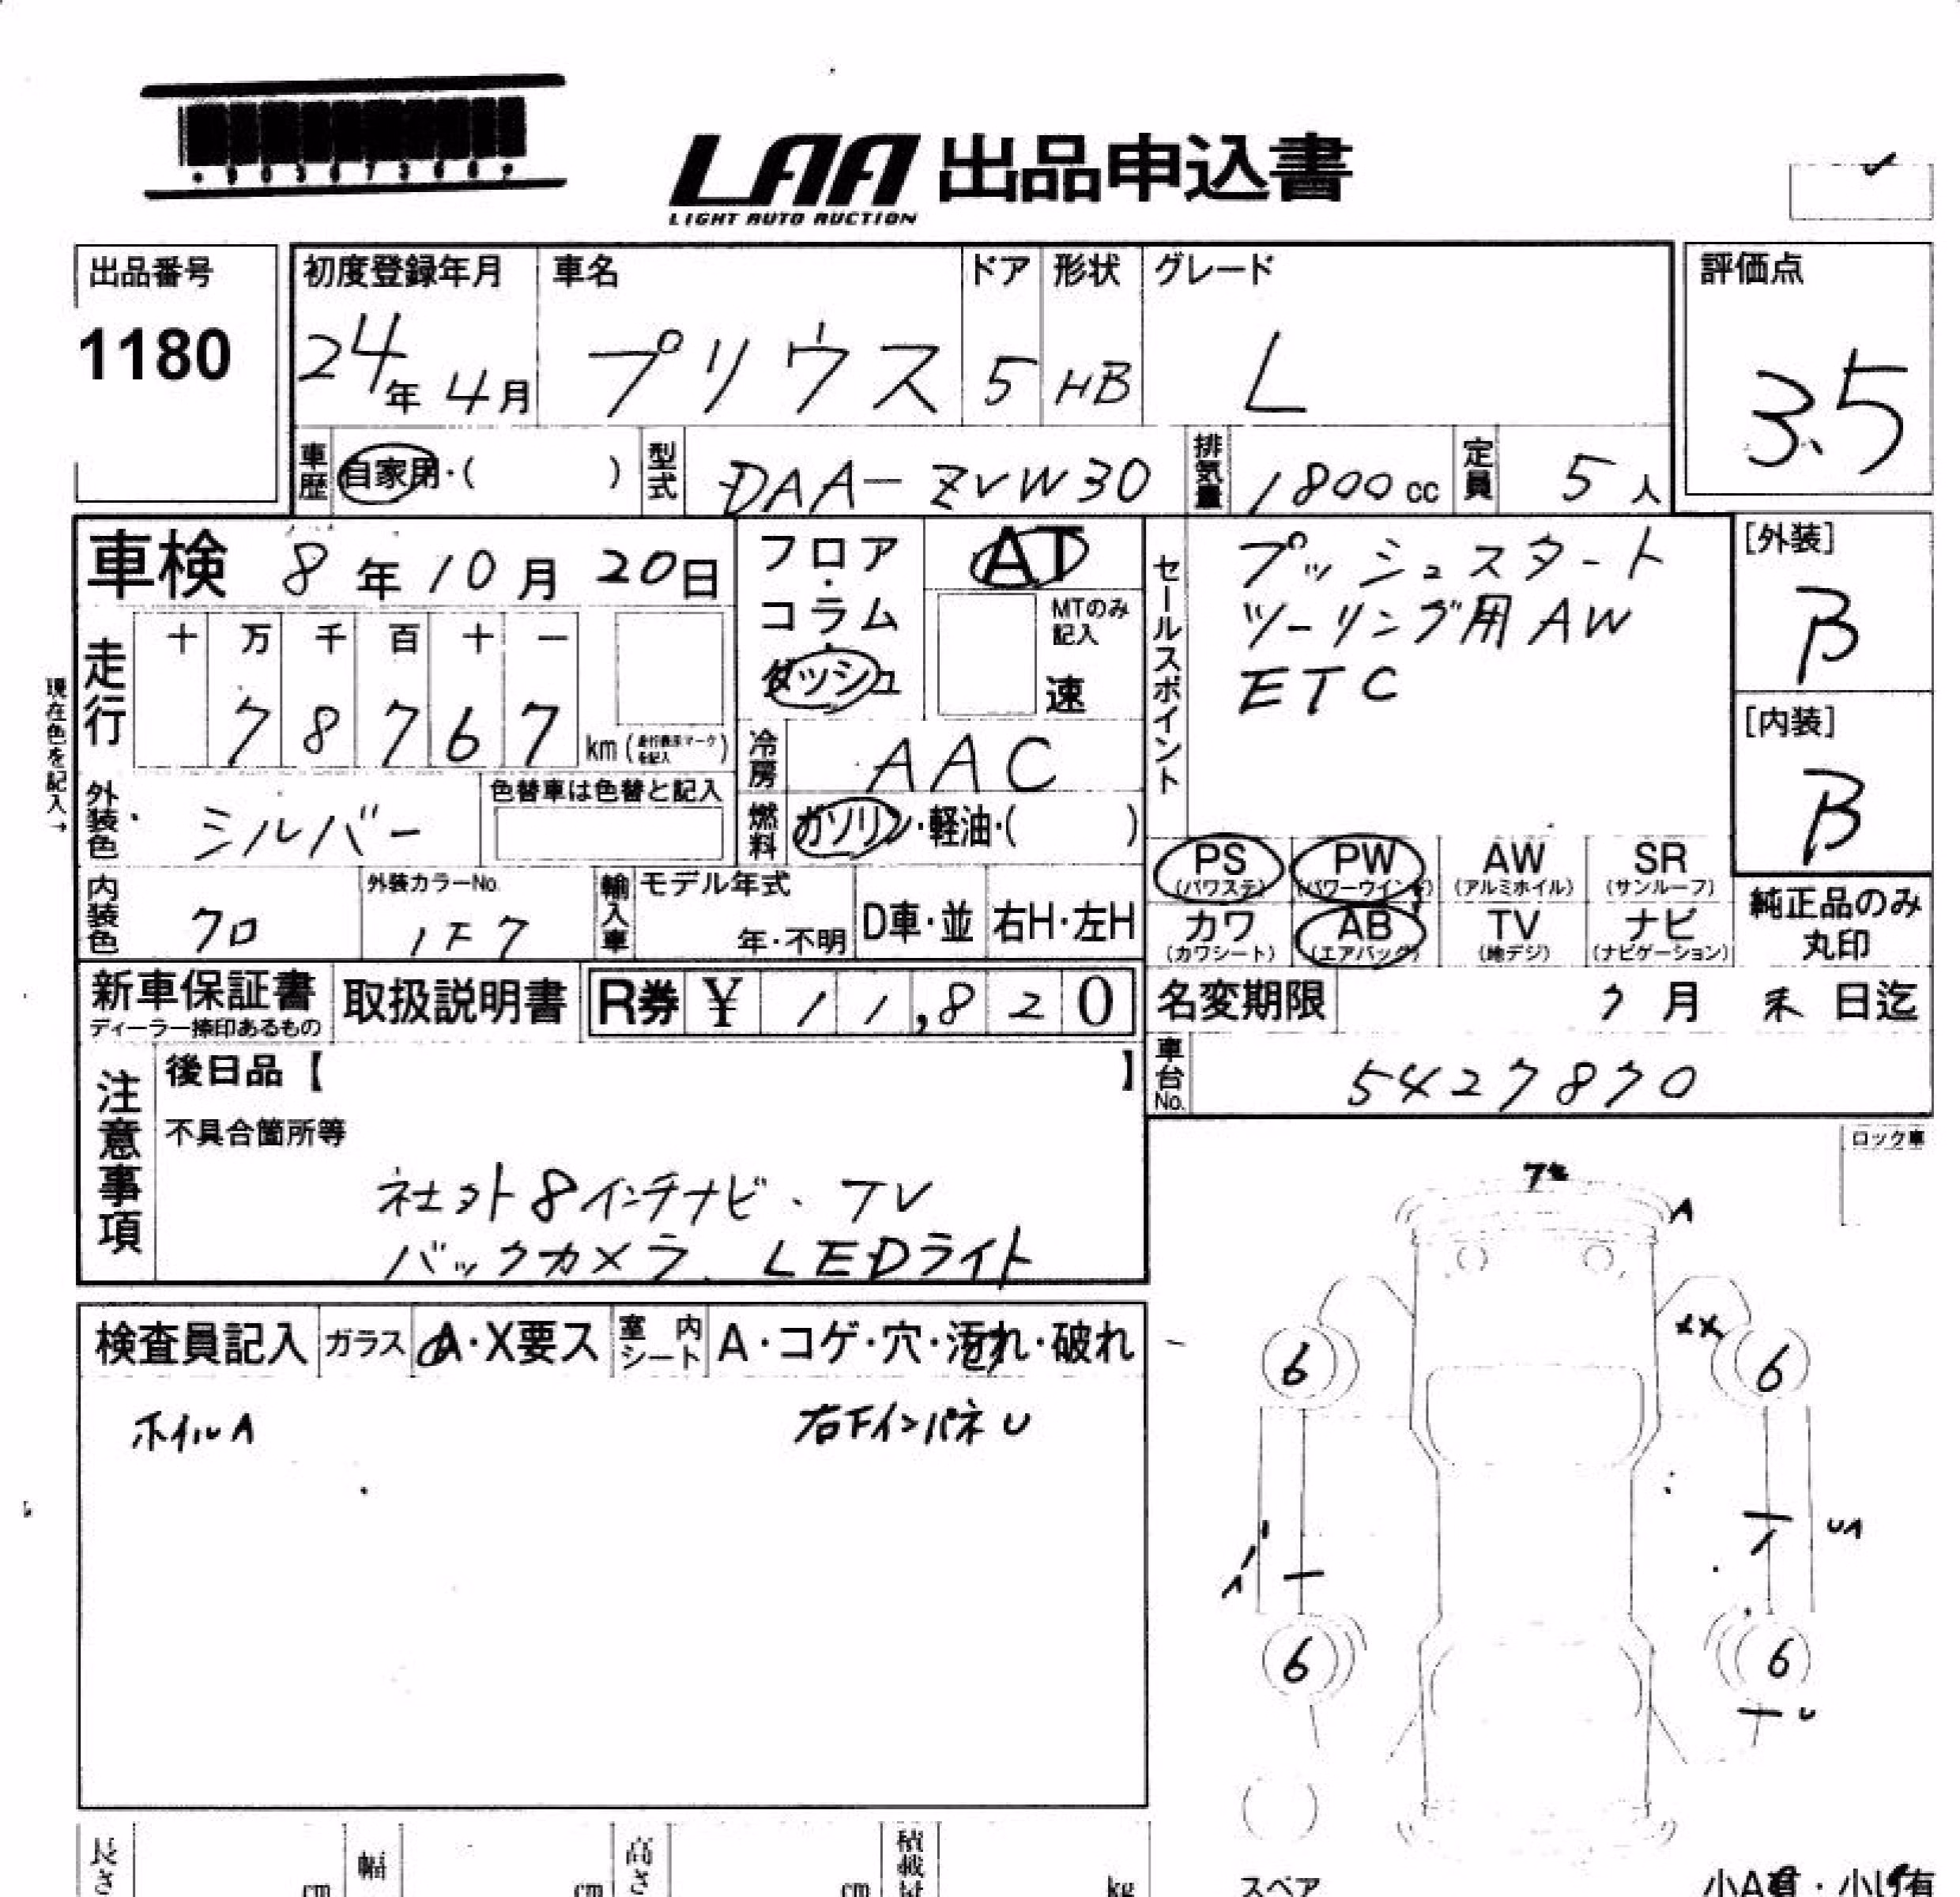 LAA 出品申込書
LIGHT AUTO AUCTION
出品番号
1180
初度登録年月 車名 ドア 形状 グレード
24年 4月 プリウス 5 HB L
評価点
3.5
車歴 自家用・( ) 型式 DAA-ZVW30 排気量 1800cc 定員 5人
車検 8年 10月 20日
フロア・コラム・ダッシュ
AT
MTのみ記入
速
セールスポイント
プッシュスタート
ツーリング用AW
ETC
[外装]
B
[内装]
B
走行
十 万 千 百 十 一
7 8 7 6 7 km (走行表示マークを記入)
現在色を記入→
冷房 AAC
外装色 シルバー 色替車は色替と記入
燃料 ガソリン・軽油・( )
PS AW PW SR
(パワステ) (パワーウインド) (アルミホイル) (サンルーフ)
カワ AB TV ナビ
(カワシート) (エアバッグ) (地デジ) (ナビゲーション)
純正品のみ
丸印
内装色 クロ 外装カラーNo. 1F7 輸入車 モデル年式 年・不明 D車・並 右H・左H
新車保証書 取扱説明書 R券 ¥ 11,820
ディーラー捺印あるもの
名変期限 7月 末日迄
車台No. 5427870
注意事項
後日品【 】
不具合箇所等
社外8インチナビ、TV
バックカメラ、LEDライト
ロック車
検査員記入 ガラス A・X要ス 室内シート A・コゲ・穴・汚れ・破れ
ホイルA 右FインパネU
A
XX
6 6
UA
A
6 6
U
スペア
長さ cm 幅 cm 高さ cm 積載量 kg
小A有・小U有